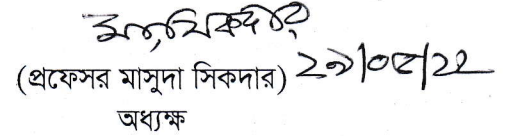 (প্রফেসর মাসুদা সিকদার) ২৯|০৫|২২
অধ্যক্ষ